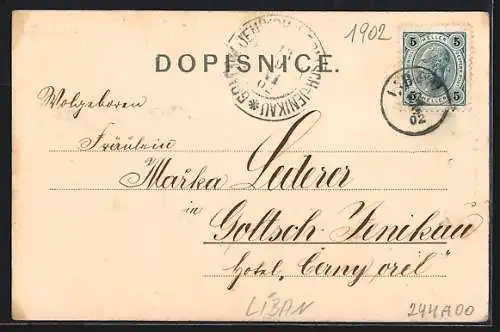 1902
5 HELLER 5
DOPISNICE.
GOLTSCH-JENIKAU
02
Wolgeboren
Fräulein
Mařka Lederer
in
Goltsch Jenikau
Hotel „Černý orel"
LIBAN
244A00